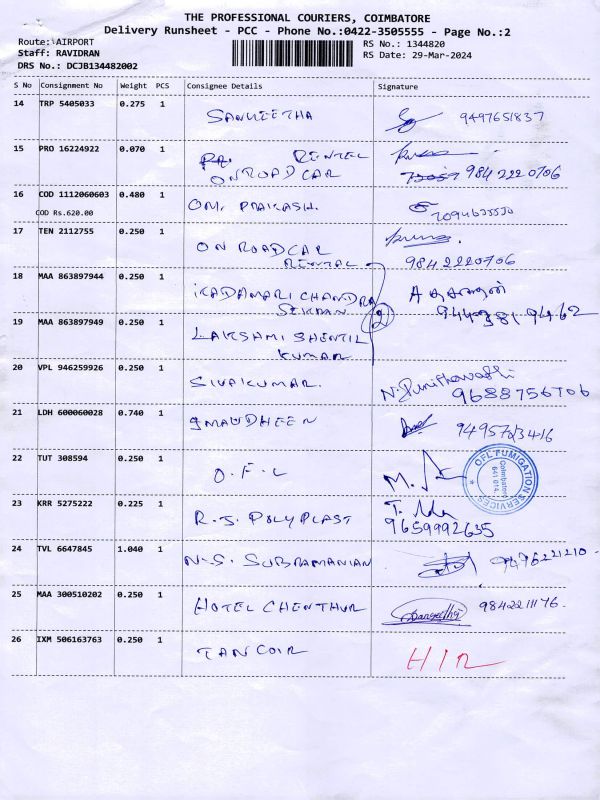 THE PROFESSIONAL COURIERS, COIMBATORE
Delivery Runsheet - PCC - Phone No.:0422-3505555 - Page No.:2
Route: AIRPORT
Staff: RAVIDRAN
DRS No.: DCJB134482002
RS No.: 1344820
RS Date: 29-Mar-2024
S No Consignment No Weight PCS Consignee Details Signature
14 TRP 5405033 0.275 1 SANGEETHA 9497651837
15 PRO 16224922 0.070 1 RENTEL
ONROAD CAR 984 222 0706
16 COD 1112060603 0.480 1 OM. PRAKASH.
COD Rs.620.00
17 TEN 2112755 0.250 1 ON ROAD CAR
RENTAL 9842220706
18 MAA 863897944 0.250 1 KADAMARI CHANDRA
SEKRAN
19 MAA 863897949 0.250 1 LAKSHMI SHENTIL
KUMAR
2
944381 9462
20 VPL 946259926 0.250 1 SIVAKUMAR. N. Punithavathi
9688756706
21 LDH 600060028 0.740 1 IMAUDHEEN
22 TUT 308594 0.250 1 O.F.L
OFL FUMIGATION SERVICES
Coimbatore
641 014.
23 KRR 5275222 0.225 1 R.J. POLYPLAST
9659992635
24 TVL 6647845 1.040 1 N.S. SUBRAMANIAN
25 MAA 300510202 0.250 1 HOTEL CHENTHUR Sangeetha 9842211176.
26 IXM 506163763 0.250 1 TAN COIR